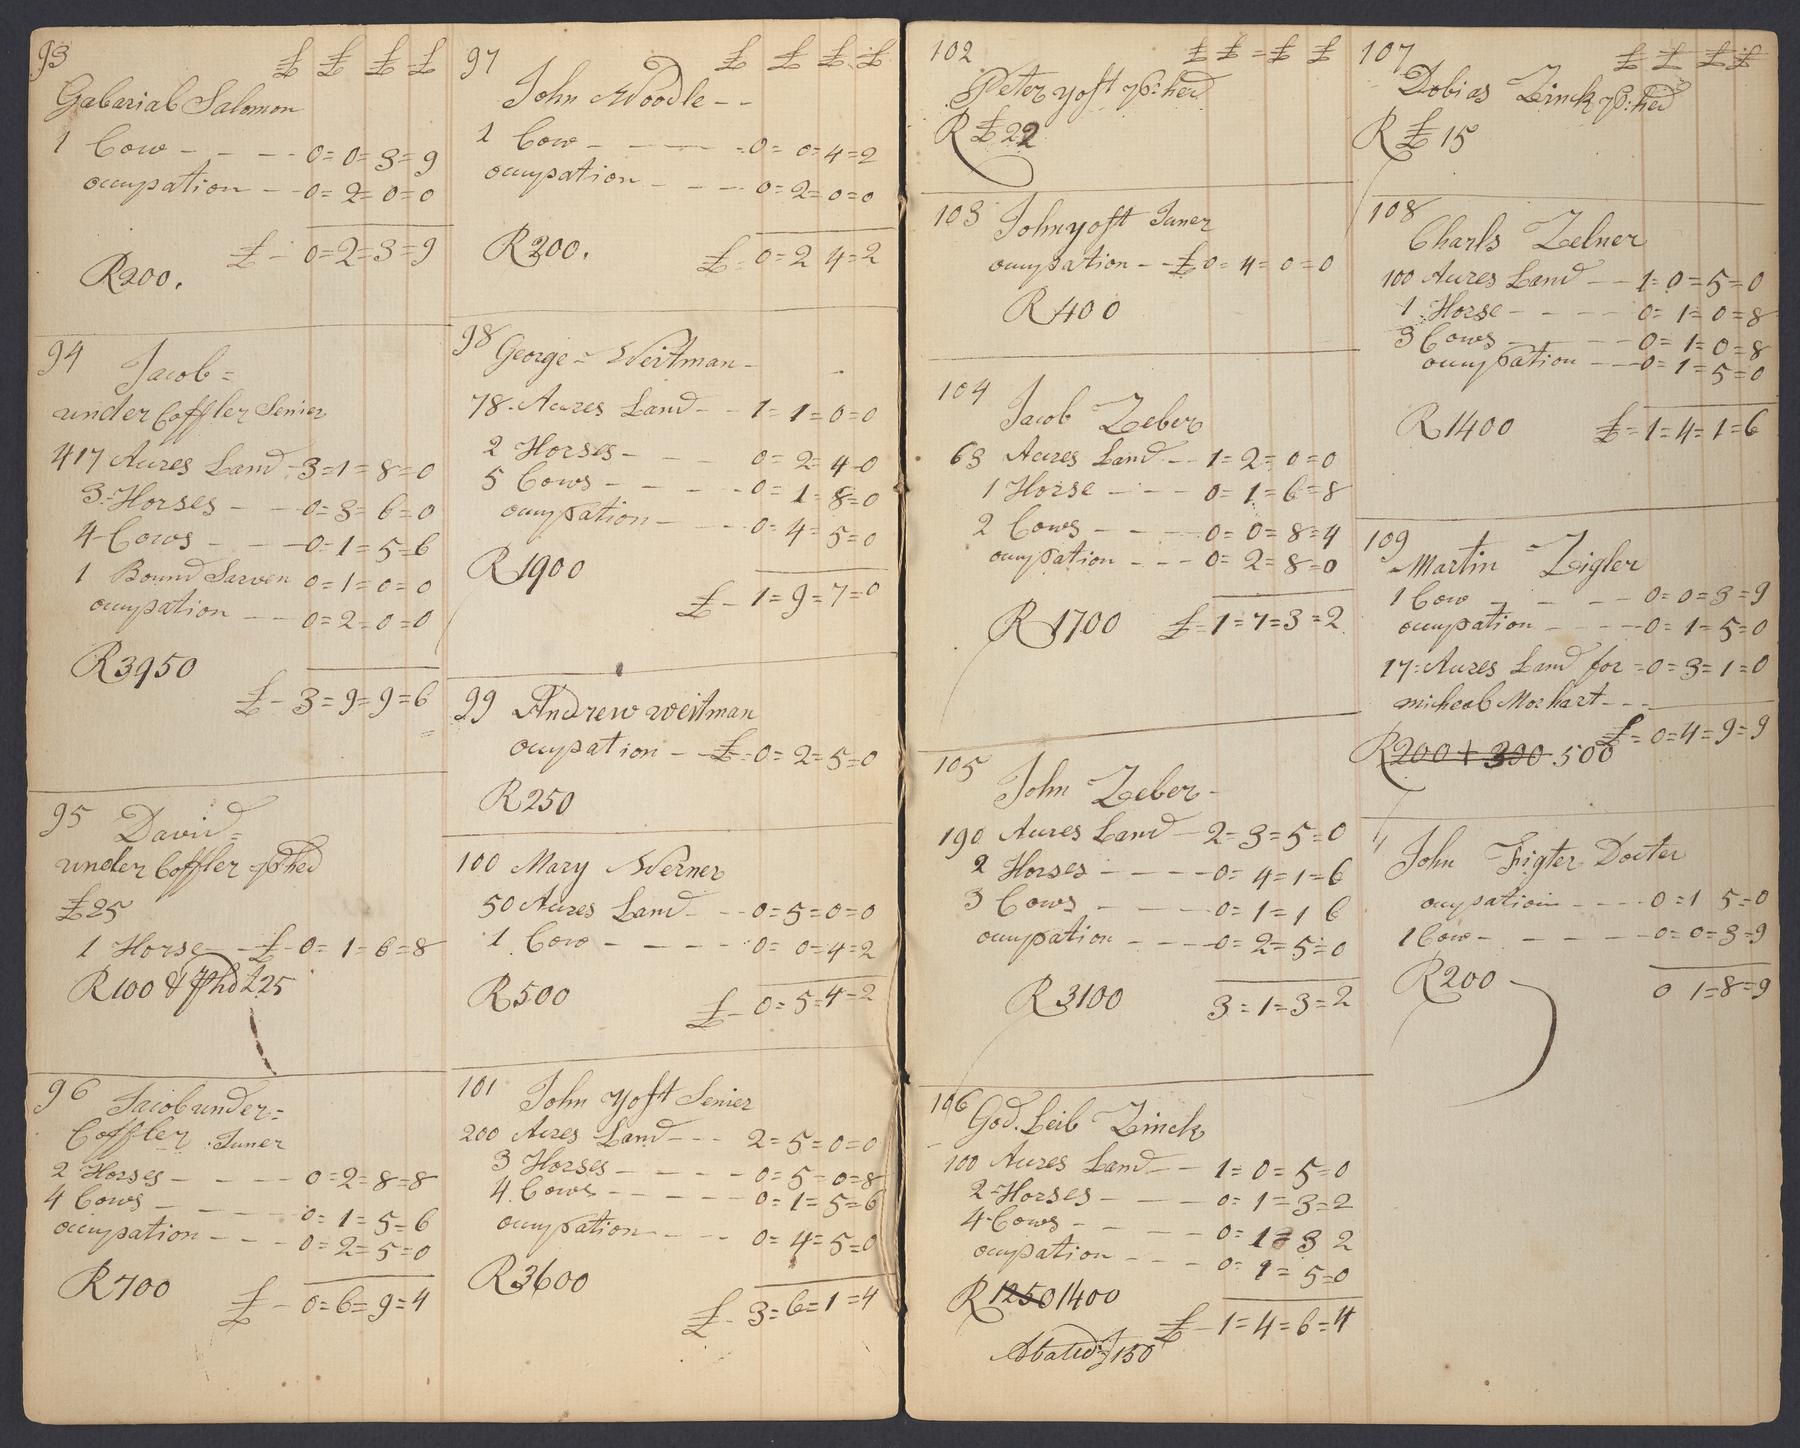 93 £ £ £ £
Gabarial Salomon
1 Cow - - - - 0=0=3=9
ocupation - - 0=2=0=0
£ - 0=2=3=9
R200.
94 Jacob =
under Coffler Senier
417 Acres Land - 3=1=8=0
3=Horses - - 0=3=6=0
4 Cows - - - 0=1=5=6
1 Bound Sarven 0=1=0=0
ocupation - - 0=2=0=0
R3950
£ - 3=9=9=6
95 David =
under Coffler
£25
1 Horse - £ - 0=1=6=8
R100 & £25
96 Jacob under =
Coffler Juner
2 Horses - - - 0=2=8=8
4 Cows - - - 0=1=5=6
ocupation - - - 0=2=5=0
R700 £ - 0=6=9=4
97 £ £ £ £
John Woodle - -
1 Cow - - - 0=0=4=2
ocupation - - - 0=2=0=0
R200. £ - 0=2 4=2
98 George = Weitman -
78 Acres Land - - 1=1=0=0
2 Horses - - - 0=2=4-0
5 Cows - - - - 0=1=8=0
ocupation - - - 0=4=5=0
R1900
£ - 1=9=7=0
99 Andrew weitman
ocupation - - £ - 0=2=5=0
R250
100 Mary Werner
50 Acres Land - - 0=5=0=0
1 Cow - - - - 0=0=4=2
R500 £ - 0=5=4=2
101 John yost Senier
200 Acres Land - - - 2=5=0=0
3 Horses - - - - 0=5=0=8
4 Cows - - - - 0=1=5=6
ocupation - - - 0=4=5=0
R3600
£ - 3=6=1=4
102 £ £ = £ £
Peter yost
R £22
103 John yost Juner
ocupation - - £ 0=4=0=0
R400
104
Jacob Zeber
63 Acres Land - - 1=2=0=0
1 Horse - - - 0=1=6=8
2 Cows - - - 0=0=8=4
ocupation - - - 0=2=8=0
R1700 £ - 1=7=3=2
105
John Zeber -
190 Acres Land - 2=3=5=0
2 Horses - - - - 0=4=1=6
3 Cows - - - 0=1=1 6
ocupation - - - 0=2=5=0
R3100 3=1=3=2
106 God. Leib Zinck
100 Acres Land - - 1=0=5=0
2=Horses - - - 0=1=3=2
4 Cows - - - 0=1=3 2
ocupation - - - 0=1=5=0
R1250 1400
£ - 1=4=6=4
Abated 150
107 £ £ £ £
Dobias Zinck
R £15
108
Charls Zelner
100 Acres Land - - 1=0=5=0
1 Horse - - - - 0=1=0=8
3 Cows - - - 0=1=0=8
ocupation - - - 0=1=5=0
R1400 £ = 1=4=1=6
109
Martin Zeigler
1 Cow - - - - 0=0=3=9
ocupation - - - - 0=1=5=0
17=Acres Land for = 0=3=1=0
micheal Morhart - - -
£ = 0=4=9=9
R200 + 300 500
John Figter Docter
ocupation - - - - 0=1 5=0
1 Cow - - - - - 0=0=3=9
R200 0 1=8=9